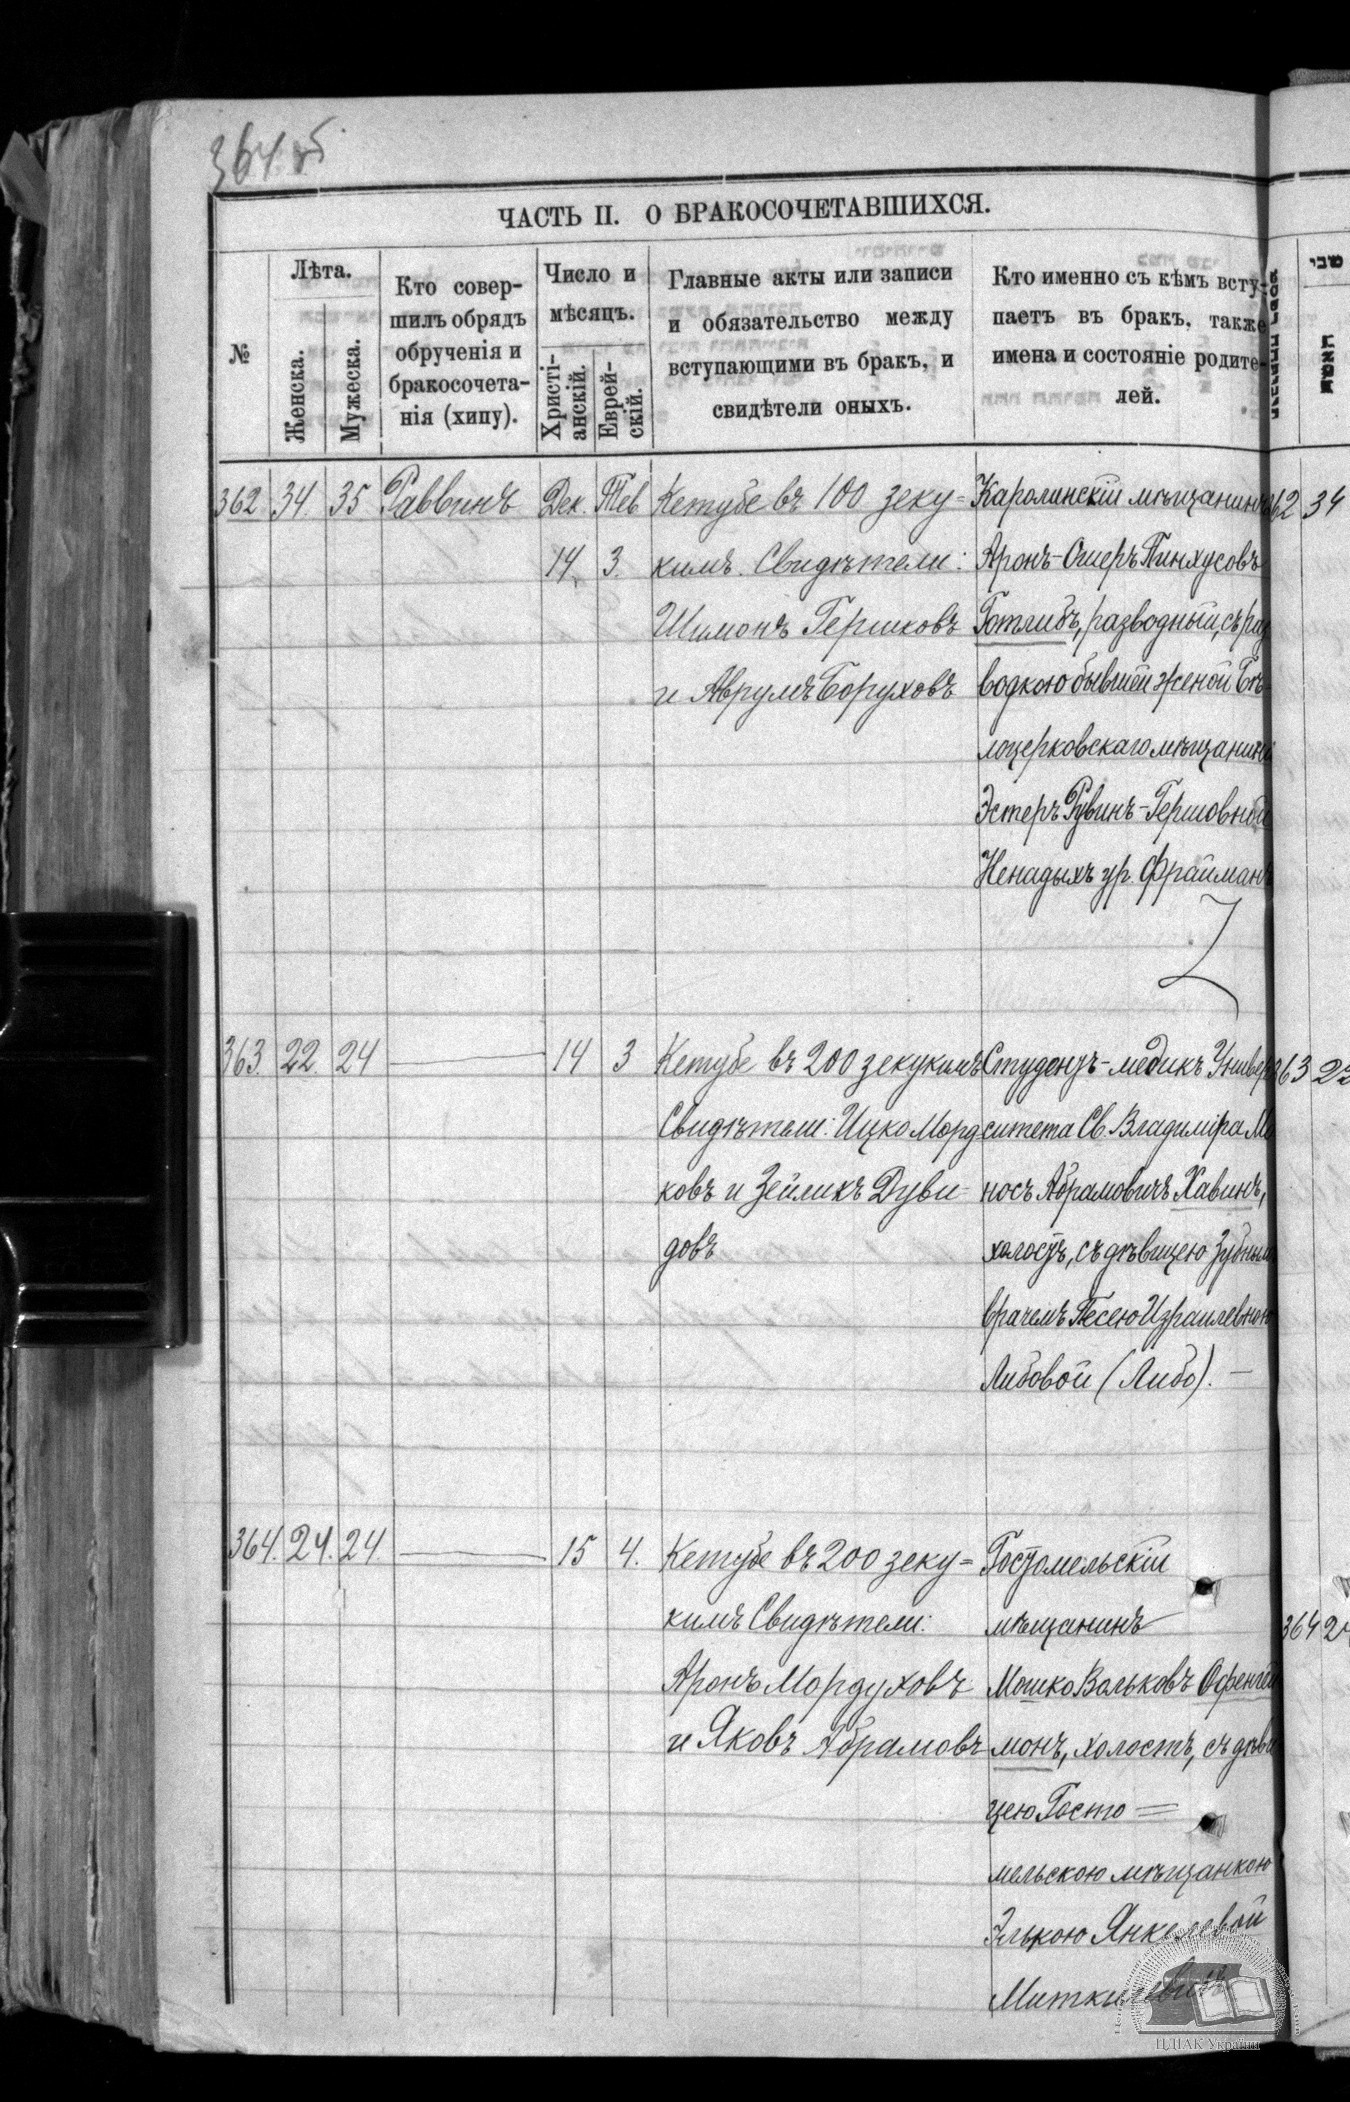 364 об
ЧАСТЬ II. О БРАКОСОЧЕТАВШИХСЯ.
№
Лѣта.
Женска.
Мужеска.
Кто совер-
шилъ обрядъ
обрученія и
бракосочета-
нія (хипу).
Число и
мѣсяцъ.
Христі-
анскій.
Еврей-
скій.
Главные акты или записи
и обязательство между
вступающими въ бракъ, и
свидѣтели оныхъ.
Кто именно съ кѣмъ всту-
паетъ въ бракъ, также
имена и состояніе родите-
лей.
362 34. 35 Раввинъ Дек. Тев
14 3.
Кетубе въ 100 зеку=
кимъ. Свидѣтели:
Шимонъ Гершковъ
и Аврумъ Боруховъ
Каролинскій мѣщанинъ
Аронъ-Ошеръ Пинхусовъ
Готлибъ, разводный, съ раз
водкою бывшей женой Бѣ-
лоцерковскаго мѣщанина
Эстеръ Рувинъ-Гершовной
Ненадыхъ ур. Фрайманъ
363. 22. 24 14 3
Кетубе въ 200 зекукимъ
Свидѣтели: Ицко Морд
ковъ и Зейликъ Дуви-
довъ
Студентъ-медикъ Универ
ситета Св. Владиміра Мо
носъ Абрамовичъ Хавинъ,
холостъ, съ дѣвицею Зубнымъ
врачемъ Песею Израилевною
Либовой (Либо). —
364. 24. 24. 15 4.
Кетубе въ 200 зеку=
кимъ Свидѣтели:
Аронъ Мордуховъ
и Яковъ Абрамовъ
Гостомельскій
мѣщанинъ
Мошко Вольковъ Офенгей
монъ, холостъ, съ дѣви
цею Госто=
мельскою мѣщанкою
Элькою Янкелевой
Миткилевичъ
62 34
63 22
364 24
שבי
ЦДІАК України